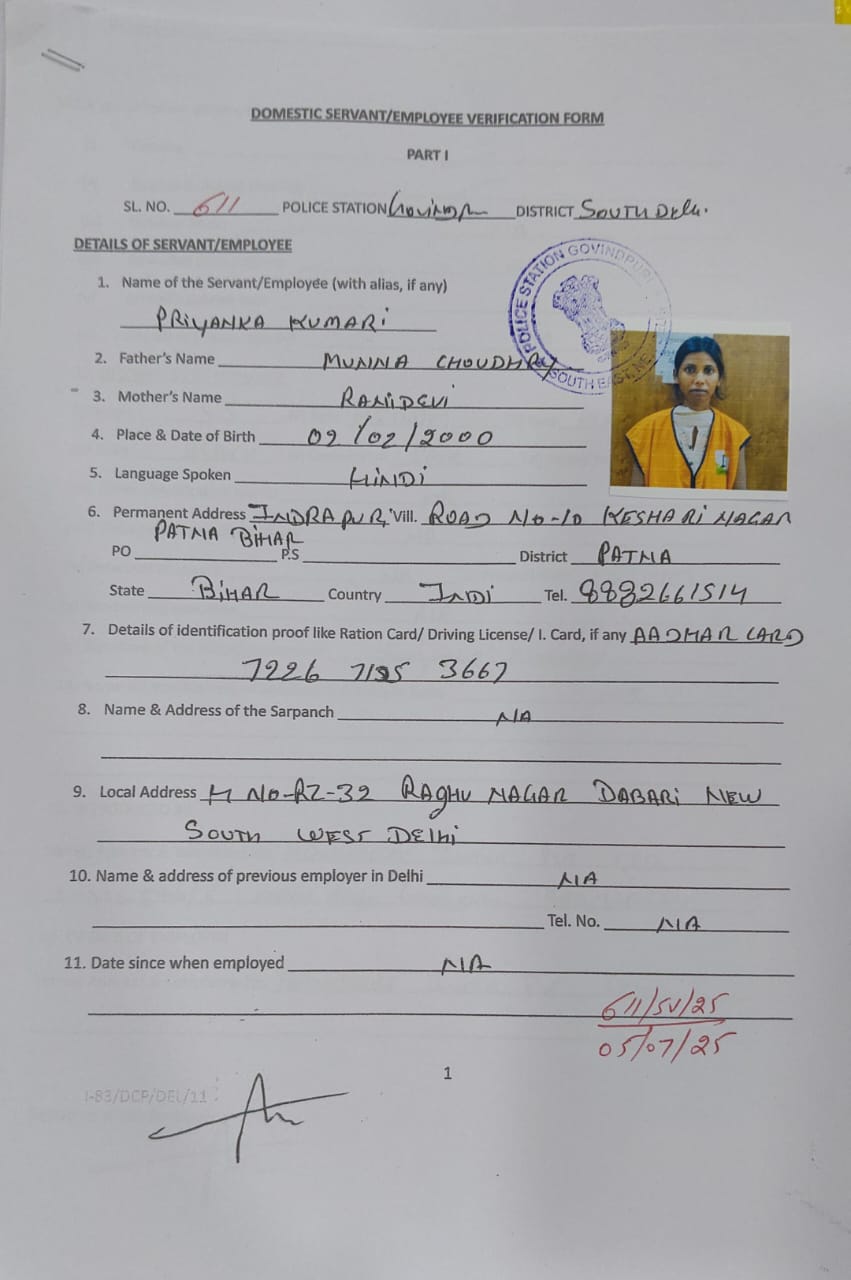 DOMESTIC SERVANT/EMPLOYEE VERIFICATION FORM
PART I
SL. NO. 611 POLICE STATION DISTRICT SOUTH Delhi.
DETAILS OF SERVANT/EMPLOYEE
POLICE STATION GOVINDPURI
SOUTH EAST, NE
1. Name of the Servant/Employee (with alias, if any)
PRIYANKA KUMARI
2. Father's Name MUNNA CHOUDHRY
3. Mother's Name RANIDEVI
4. Place & Date of Birth 09/02/2000
5. Language Spoken HINDI
6. Permanent Address INDRAPURI, Vill. ROAD NO-10 KESHARI NAGAR
PATNA BIHAR
PO P.S District PATNA
State BIHAR Country INDI Tel. 8882661514
7. Details of identification proof like Ration Card/ Driving License/ I. Card, if any AADHAR CARD
7226 3667
8. Name & Address of the Sarpanch N/A
9. Local Address H NO-RZ-32 RAGHU NAGAR DABARI NEW
SOUTH WEST DELHI
10. Name & address of previous employer in Delhi N/A
Tel. No. N/A
11. Date since when employed N/A
611/SV/25
05/07/25
1
I-83/DCP/DEL/11